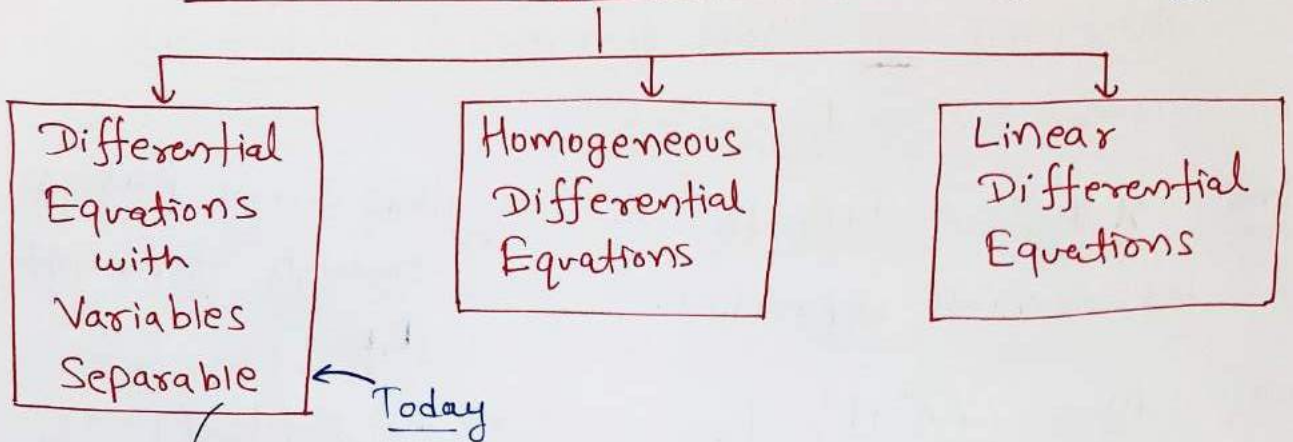 Differential
Equations
with
Variables
Separable
Today
Homogeneous
Differential
Equations
Linear
Differential
Equations